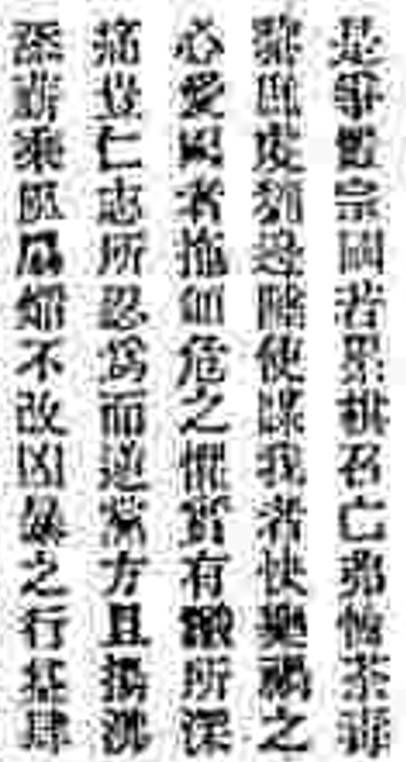 是置宗國若累棋召亡弗恤荼毒
黎虔劉邊陲使謀我者快樂禍之
心愛國者抱危之懼實有識所深
痛豈仁志所忍為而逆黨方且揚沸
添薪乘風扇焰不改凶暴之行肆